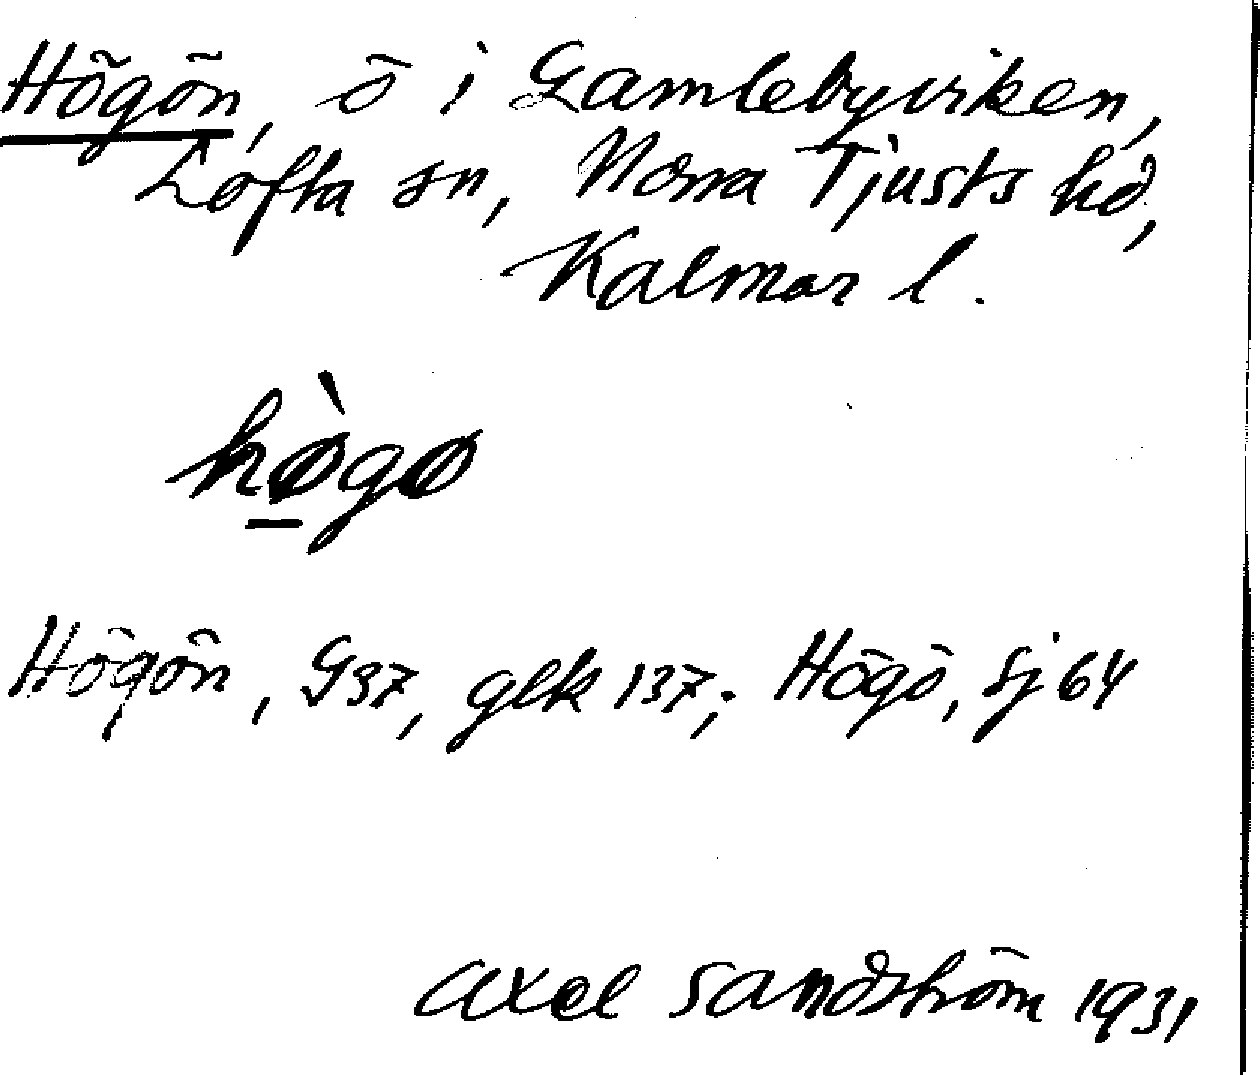 Högön, ö i Gamlebyviken,
Lofta sn, Norra Tjusts hd,
Kalmar l.
hø̀gø
Högön, G37, glk 137; Högö, Sj 64
Axel Sandström 1931